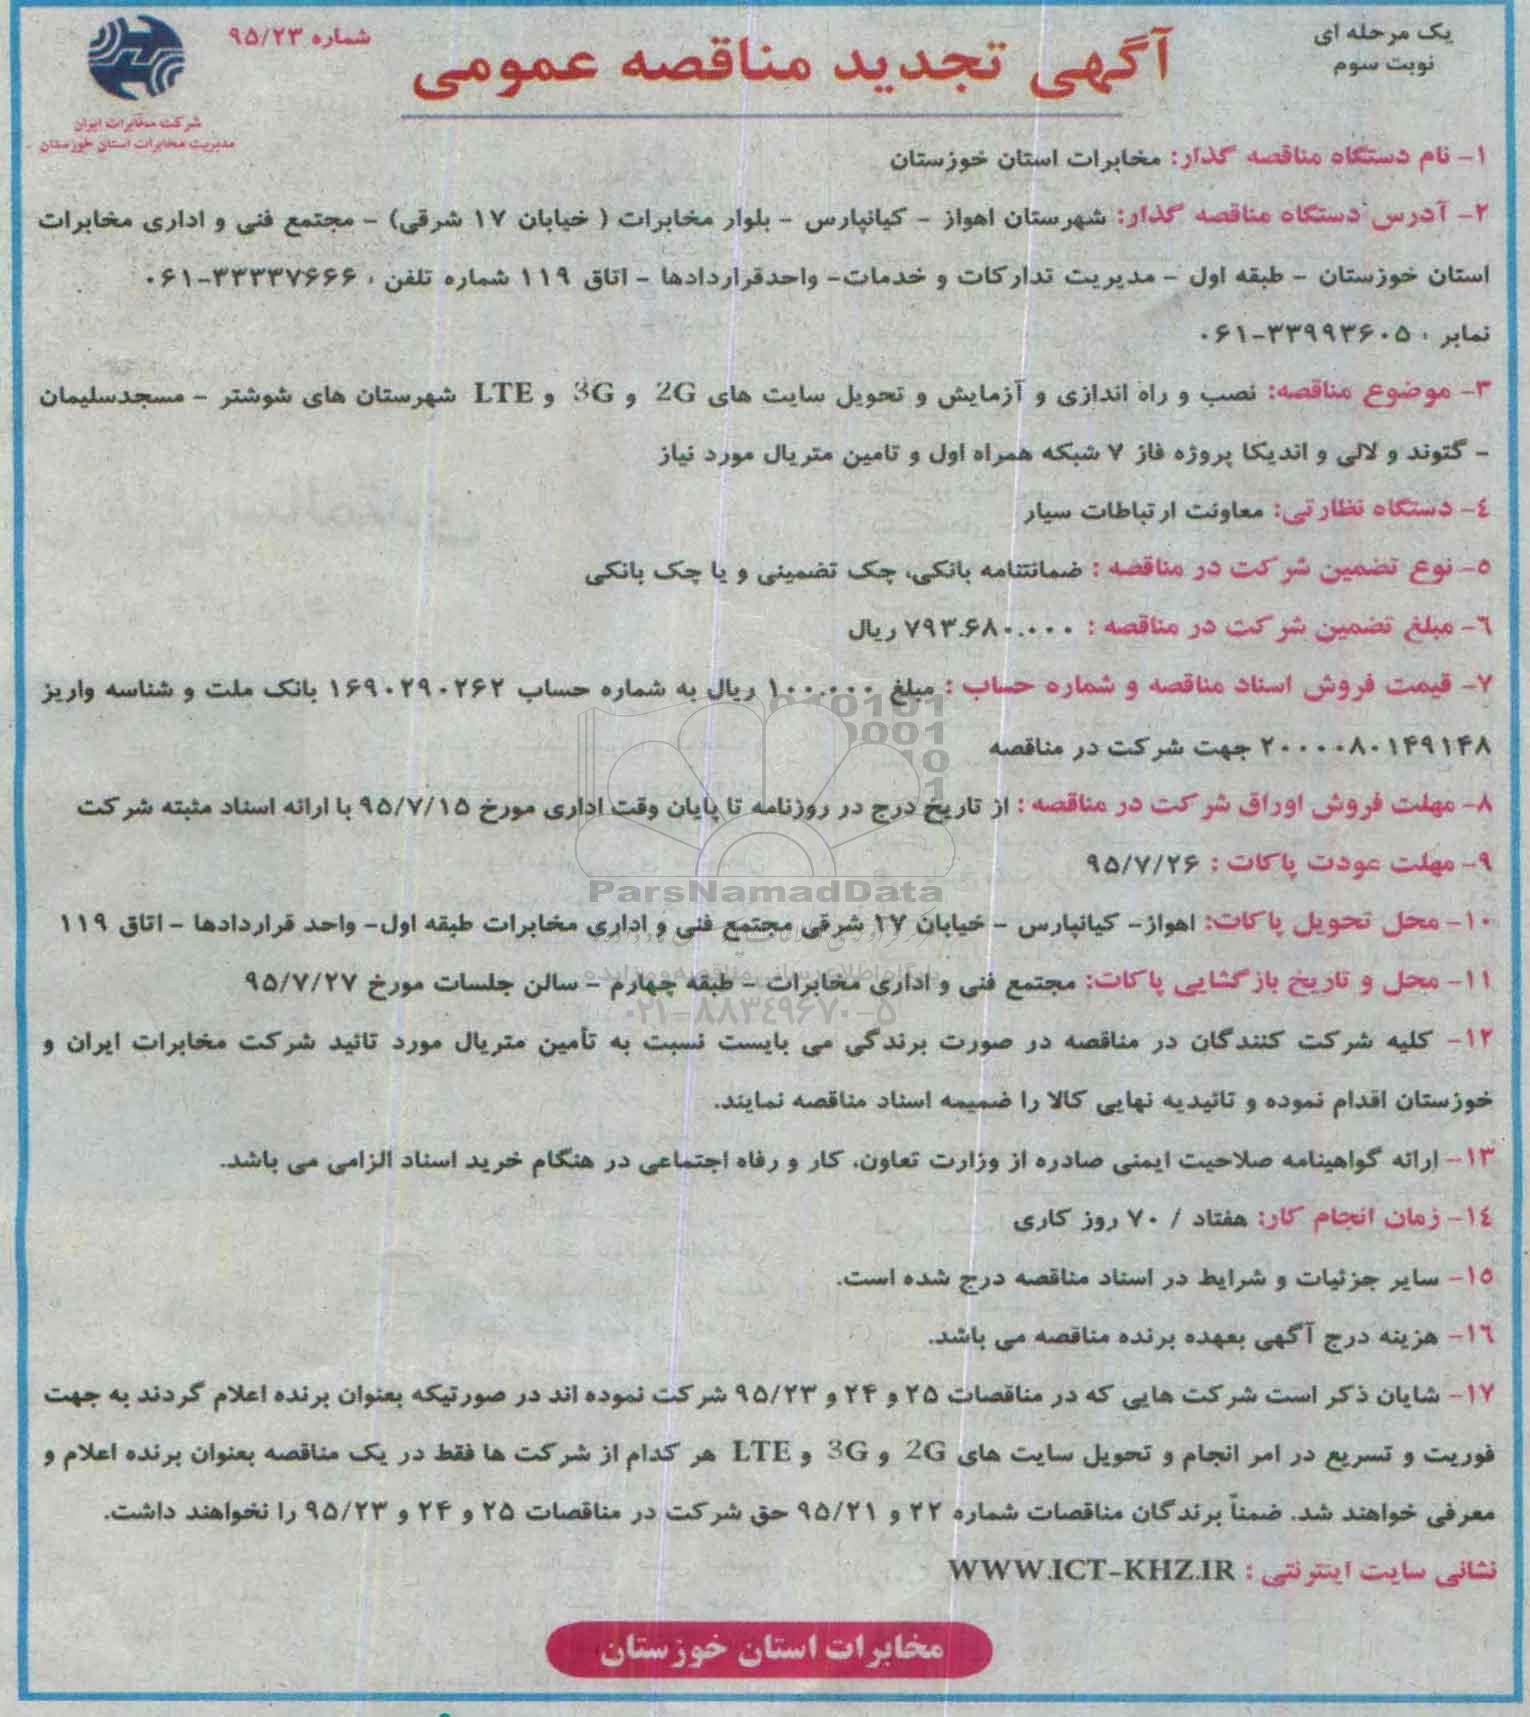 یک مرحله ای
نوبت سوم
آگهی تجدید مناقصه عمومی
شماره ۹۵/۲۳
شرکت مخابرات ایران
مدیریت مخابرات استان خوزستان
۱- نام دستگاه مناقصه گذار: مخابرات استان خوزستان
۲- آدرس دستگاه مناقصه گذار: شهرستان اهواز - کیانپارس - بلوار مخابرات ( خیابان ۱۷ شرقی) - مجتمع فنی و اداری مخابرات
استان خوزستان - طبقه اول - مدیریت تدارکات و خدمات- واحدقراردادها - اتاق ۱۱۹ شماره تلفن : ۳۳۳۳۷۶۶۶-۰۶۱
نمابر : ۳۳۹۹۳۶۰۵-۰۶۱
۳- موضوع مناقصه: نصب و راه اندازی و آزمایش و تحویل سایت های 2G و 3G و LTE شهرستان های شوشتر - مسجدسلیمان
- گتوند و لالی و اندیکا پروژه فاز ۷ شبکه همراه اول و تامین متریال مورد نیاز
۴- دستگاه نظارتی: معاونت ارتباطات سیار
۵- نوع تضمین شرکت در مناقصه : ضمانتنامه بانکی، چک تضمینی و یا چک بانکی
۶- مبلغ تضمین شرکت در مناقصه : ۷۹۳.۶۸۰.۰۰۰ ریال
۷- قیمت فروش اسناد مناقصه و شماره حساب : مبلغ ۱۰۰.۰۰۰ ریال به شماره حساب ۱۶۹۰۲۹۰۲۶۲ بانک ملت و شناسه واریز
۲۰۰۰۰۸۰۱۴۹۱۴۸ جهت شرکت در مناقصه
۸- مهلت فروش اوراق شرکت در مناقصه : از تاریخ درج در روزنامه تا پایان وقت اداری مورخ ۹۵/۷/۱۵ با ارائه اسناد مثبته شرکت
۹- مهلت عودت پاکات : ۹۵/۷/۲۶
ParsNamadData
۱۰- محل تحویل پاکات: اهواز- کیانپارس - خیابان ۱۷ شرقی مجتمع فنی و اداری مخابرات طبقه اول- واحد قراردادها - اتاق ۱۱۹
پایگاه اطلاع رسانی مناقصه و مزایده
۱۱- محل و تاریخ بازگشایی پاکات: مجتمع فنی و اداری مخابرات - طبقه چهارم - سالن جلسات مورخ ۹۵/۷/۲۷
۰۲۱-۸۸۳۴۹۶۷۰-۵
۱۲- کلیه شرکت کنندگان در مناقصه در صورت برندگی می بایست نسبت به تأمین متریال مورد تائید شرکت مخابرات ایران و
خوزستان اقدام نموده و تائیدیه نهایی کالا را ضمیمه اسناد مناقصه نمایند.
۱۳- ارائه گواهینامه صلاحیت ایمنی صادره از وزارت تعاون، کار و رفاه اجتماعی در هنگام خرید اسناد الزامی می باشد.
۱۴- زمان انجام کار: هفتاد / ۷۰ روز کاری
۱۵- سایر جزئیات و شرایط در اسناد مناقصه درج شده است.
۱۶- هزینه درج آگهی بعهده برنده مناقصه می باشد.
۱۷- شایان ذکر است شرکت هایی که در مناقصات ۲۵ و ۲۴ و ۹۵/۲۳ شرکت نموده اند در صورتیکه بعنوان برنده اعلام گردند به جهت
فوریت و تسریع در امر انجام و تحویل سایت های 2G و 3G و LTE هر کدام از شرکت ها فقط در یک مناقصه بعنوان برنده اعلام و
معرفی خواهند شد. ضمناً برندگان مناقصات شماره ۲۲ و ۹۵/۲۱ حق شرکت در مناقصات ۲۵ و ۲۴ و ۹۵/۲۳ را نخواهند داشت.
نشانی سایت اینترنتی : WWW.ICT-KHZ.IR
مخابرات استان خوزستان